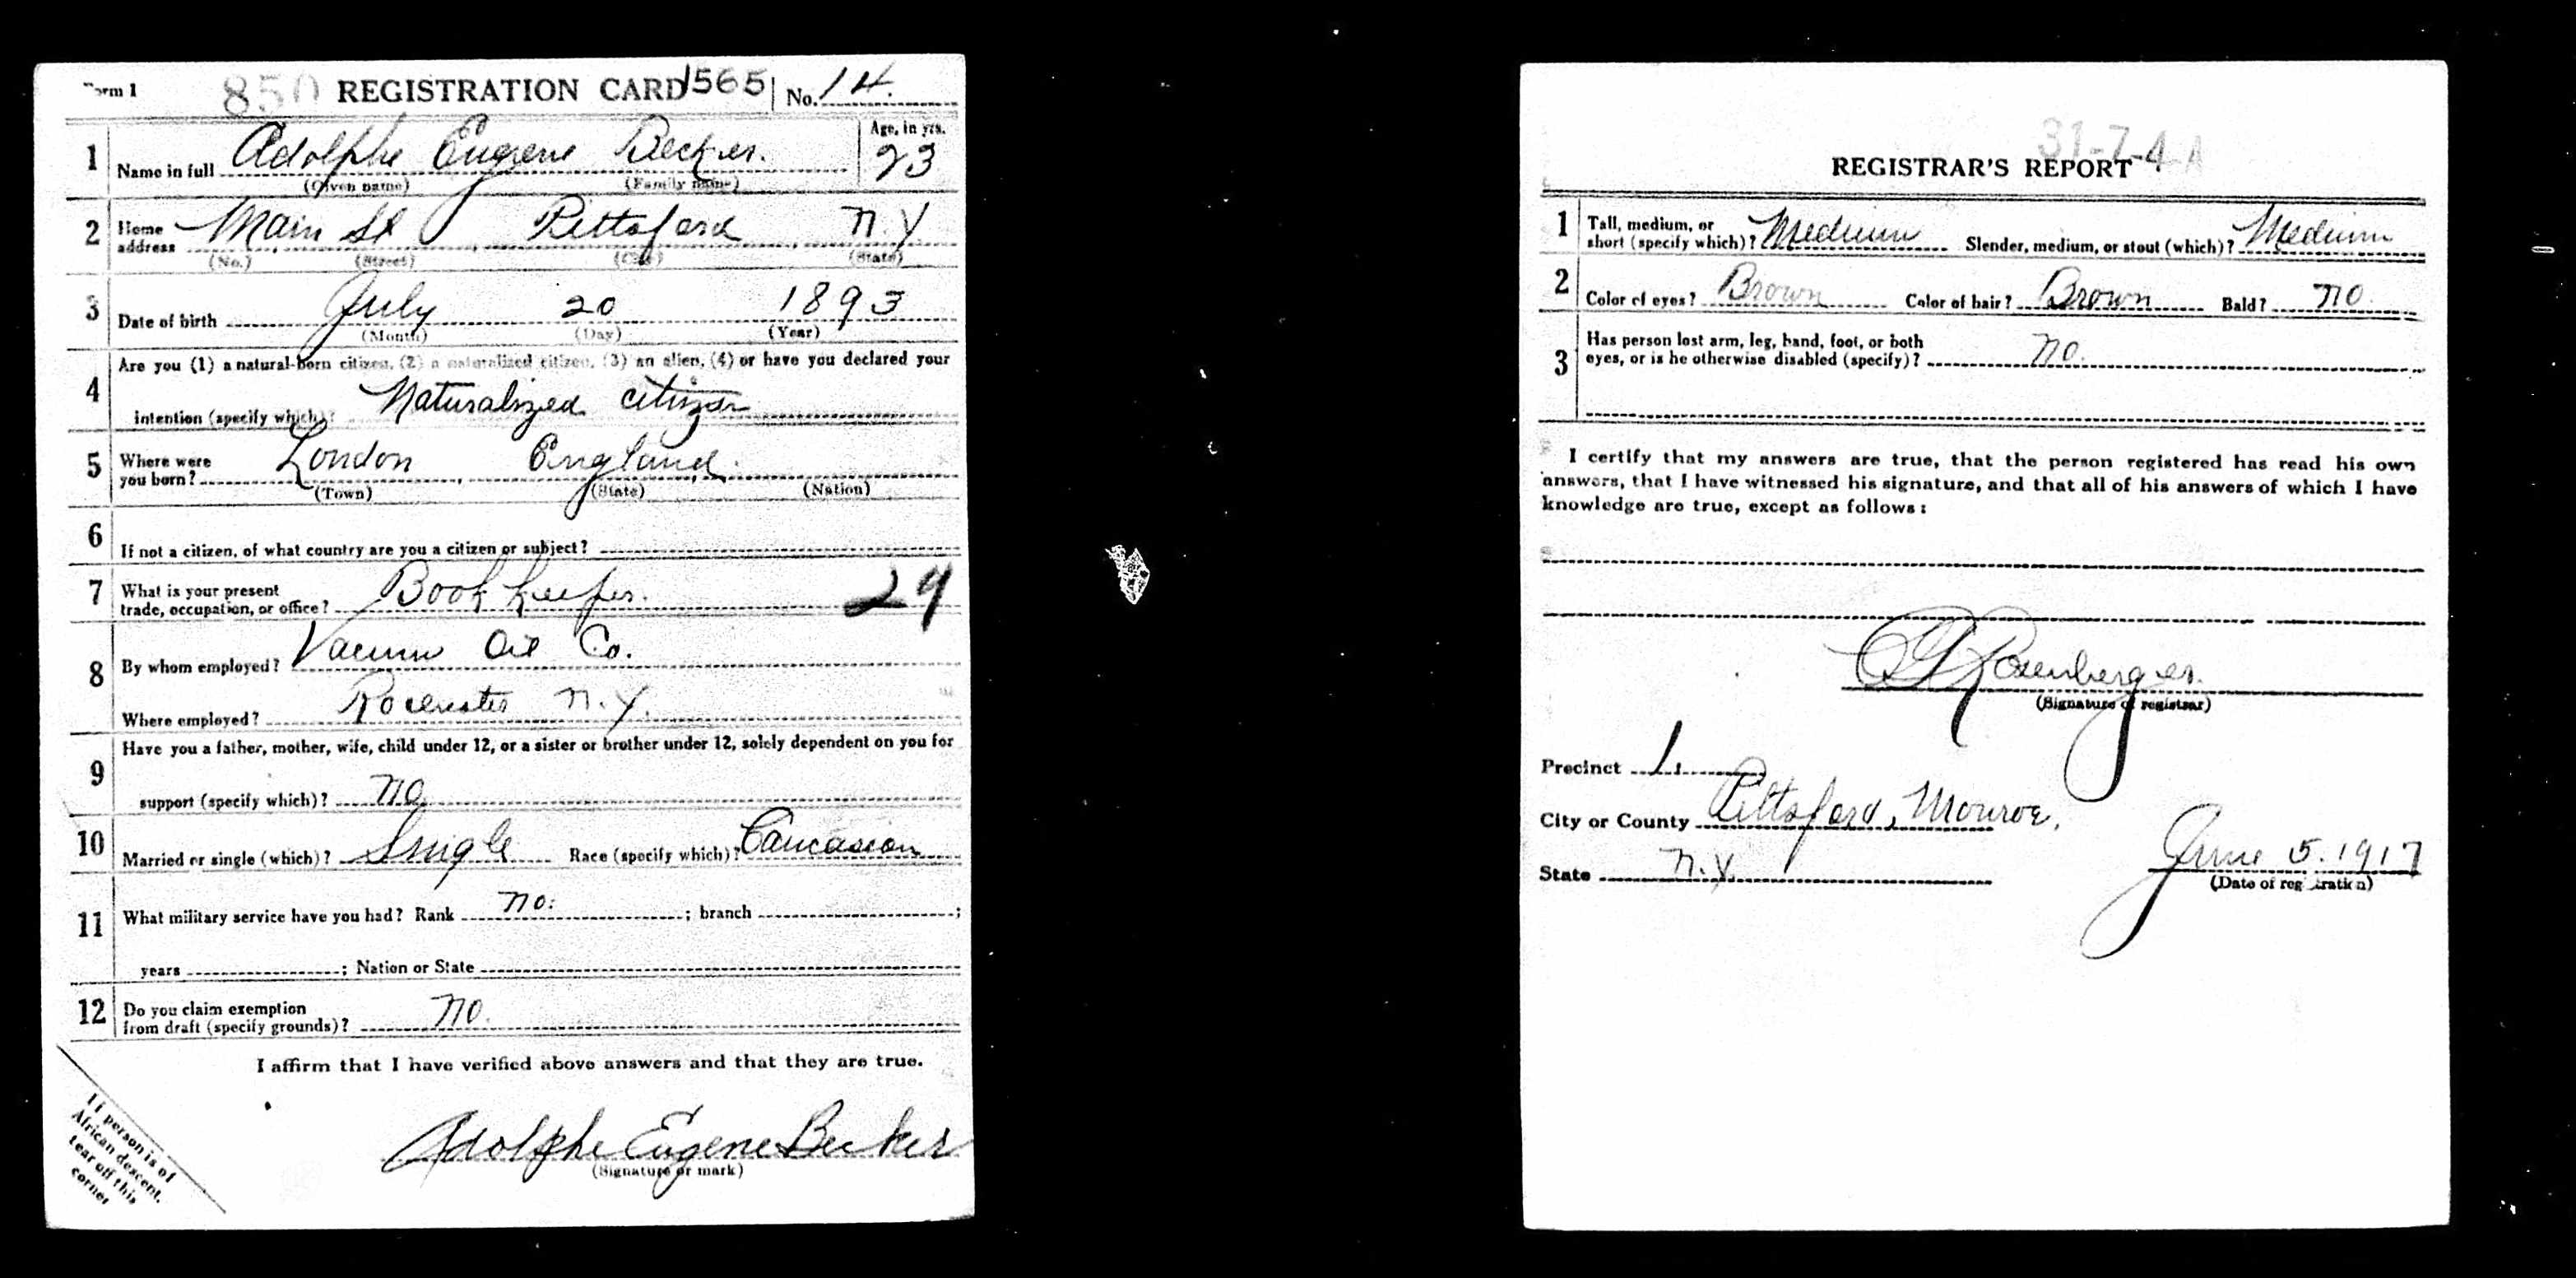 Form 1 850 REGISTRATION CARD 1565 No. 14.
1 Name in full Adolphe Eugene Becker. Age, in yrs. 23
(Given name) (Family name)
2 Home address Main St Pittsford N.Y
(No.) (Street) (City) (State)
3 Date of birth July 20 1893
(Month) (Day) (Year)
Are you (1) a natural-born citizen, (2) a naturalized citizen, (3) an alien, (4) or have you declared your
4 intention (specify which)? Naturalized citizen
5 Where were you born? London England.
(Town) (State) (Nation)
6 If not a citizen, of what country are you a citizen or subject?
7 What is your present trade, occupation, or office? Book keeper. 29
8 By whom employed? Vacuum Oil Co.
Where employed? Rochester N.Y.
Have you a father, mother, wife, child under 12, or a sister or brother under 12, solely dependent on you for
9 support (specify which)? No
10 Married or single (which)? Single Race (specify which)? Caucasian
11 What military service have you had? Rank No. ; branch ;
years ; Nation or State
12 Do you claim exemption from draft (specify grounds)? No.
I affirm that I have verified above answers and that they are true.
Adolphe Eugene Becker
(Signature or mark)
If person is of
African descent,
tear off this
corner
31-7-4-A
REGISTRAR'S REPORT
1 Tall, medium, or short (specify which)? Medium Slender, medium, or stout (which)? Medium
2 Color of eyes? Brown Color of hair? Brown Bald? No
3 Has person lost arm, leg, hand, foot, or both
eyes, or is he otherwise disabled (specify)? No.
I certify that my answers are true, that the person registered has read his own
answers, that I have witnessed his signature, and that all of his answers of which I have
knowledge are true, except as follows:
Rosenberger.
(Signature of registrar)
Precinct 1.
City or County Pittsford, Monroe.
State N.Y. June 5. 1917
(Date of registration)